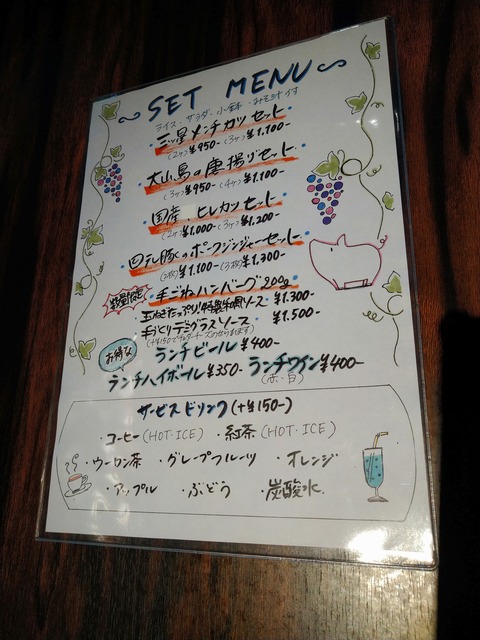 SET MENU
ライス・サラダ・小鉢・みそ汁付
三ツ星メンチカツセット
(2ヶ)¥950- (3ヶ)¥1,100-
大山鳥の唐揚げセット
(3ヶ)¥950- (4ヶ)¥1,100-
国産 ヒレカツセット
(2ヶ)¥1,000- (3ヶ)¥1,200-
四元豚のポークジンジャーセット
(2枚)¥1,100- (3枚)¥1,300-
数量限定! 手ごねハンバーグ200g
玉ねぎたっぷり!特製和風ソース ¥1,300-
手づくりデミグラスソース ¥1,500-
(+¥150でチェダーチーズのせられます)
お得な ランチビール ¥400-
ランチハイボール ¥350- ランチワイン ¥400-
(赤・白)
サービスドリンク(+¥150-)
・コーヒー(HOT・ICE) ・紅茶(HOT・ICE)
・ウーロン茶 ・グレープフルーツ ・オレンジ
・アップル ・ぶどう ・炭酸水